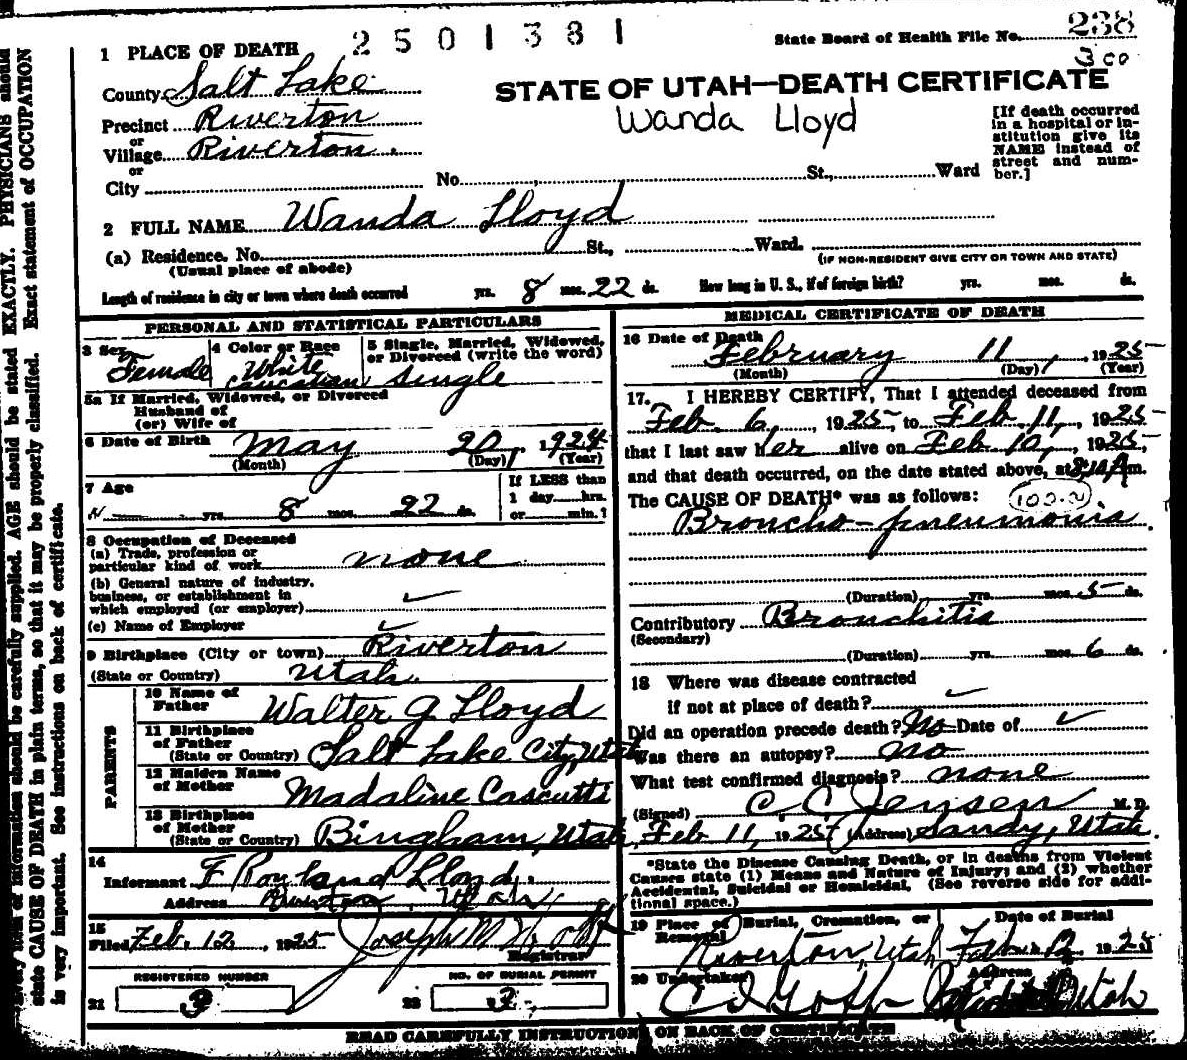 2501381
State Board of Health File No. 238
300
1 PLACE OF DEATH
STATE OF UTAH—DEATH CERTIFICATE
County Salt Lake
Wanda Lloyd
Precinct Riverton
or
Village Riverton.
or
City No. St., Ward
[If death occurred
in a hospital or in-
stitution give its
NAME instead of
street and num-
ber.]
2 FULL NAME Wanda Lloyd
(a) Residence. No. St., Ward.
(Usual place of abode)
(IF NON-RESIDENT GIVE CITY OR TOWN AND STATE)
Length of residence in city or town where death occurred yrs. 8 mos. 22 ds. How long in U. S., if of foreign birth? yrs. mos. ds.
PERSONAL AND STATISTICAL PARTICULARS
3 Sex Female
4 Color or Race White Caucasian
5 Single, Married, Widowed,
or Divorced (write the word)
Single
5a If Married, Widowed, or Divorced
Husband of
(or) Wife of
6 Date of Birth May 20, 1924
(Month) (Day) (Year)
7 Age yrs. 8 mos. 22 ds.
If LESS than
1 day hrs.
or min.?
8 Occupation of Deceased
(a) Trade, profession or
particular kind of work none
(b) General nature of industry,
business, or establishment in
which employed (or employer)
(c) Name of Employer
9 Birthplace (City or town) Riverton
(State or Country) Utah.
PARENTS
10 Name of
Father Walter J Lloyd
11 Birthplace
of Father
(State or Country) Salt Lake City, Utah
12 Maiden Name
of Mother Madaline
13 Birthplace
of Mother
(State or Country) Bingham, Utah
14
Informant Lloyd.
Address Riverton, Utah
15
Filed Feb. 12, 1925 Joseph M
Registrar
REGISTERED NUMBER
21 3
NO. OF BURIAL PERMIT
22 3
MEDICAL CERTIFICATE OF DEATH
16 Date of Death
February 11, 1925
(Month) (Day) (Year)
17. I HEREBY CERTIFY, That I attended deceased from
Feb. 6, 1925, to Feb. 11, 1925
that I last saw her alive on Feb 10, 1925,
and that death occurred, on the date stated above, at 8:10 A m.
The CAUSE OF DEATH* was as follows:
Broncho-pneumonia.
(Duration) yrs. mos. 5 ds.
Contributory Bronchitis
(Secondary)
(Duration) yrs. mos. 6 ds.
18 Where was disease contracted
if not at place of death?
Did an operation precede death? No Date of
Was there an autopsy? no
What test confirmed diagnosis? none
(Signed) C. C. Jensen M. D.
Feb 11, 1925 (Address) Sandy, Utah.
*State the Disease Causing Death, or in deaths from Violent
Causes state (1) Means and Nature of Injury; and (2) whether
Accidental, Suicidal or Homicidal. (See reverse side for addi-
tional space.)
19 Place of Burial, Cremation, or
Removal
Date of Burial
Riverton, Utah Feb. 12 1925
20 Undertaker Address
Utah
READ CAREFULLY INSTRUCTIONS ON BACK OF CERTIFICATE
information should be carefully supplied. AGE should be stated EXACTLY. PHYSICIANS should
state CAUSE OF DEATH in plain terms, so that it may be properly classified. Exact statement of OCCUPATION
is very important. See instructions on back of certificate.